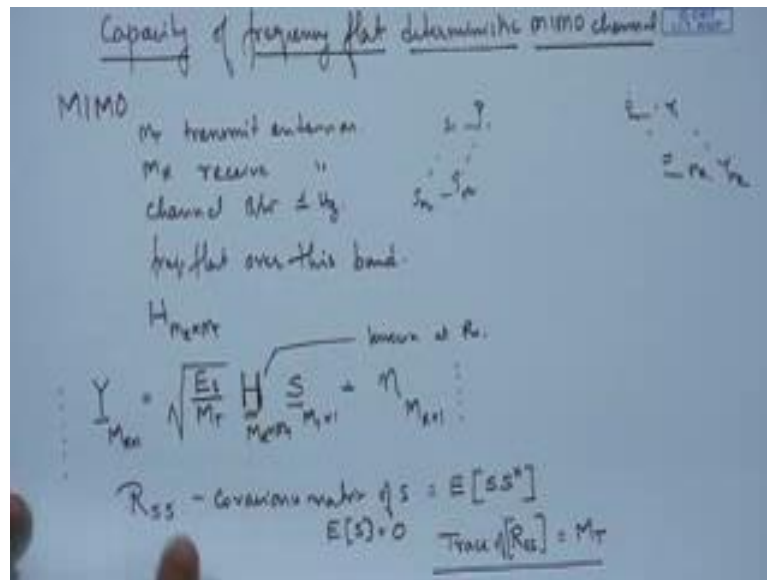 Capacity of frequency flat deterministic MIMO channel
MIMO
M_T transmit antennas
M_R receive "
channel B/W 1 Hz.
freq flat over this band.
H_{M_R×M_T}
known at Rx.
Y_{M_R×1} = √(Es/M_T) H_{M_R×M_T} S_{M_T×1} + n_{M_R×1}
R_SS - Covariance matrix of S = E[SS^H]
E[S]=0 Trace of [R_SS] = M_T